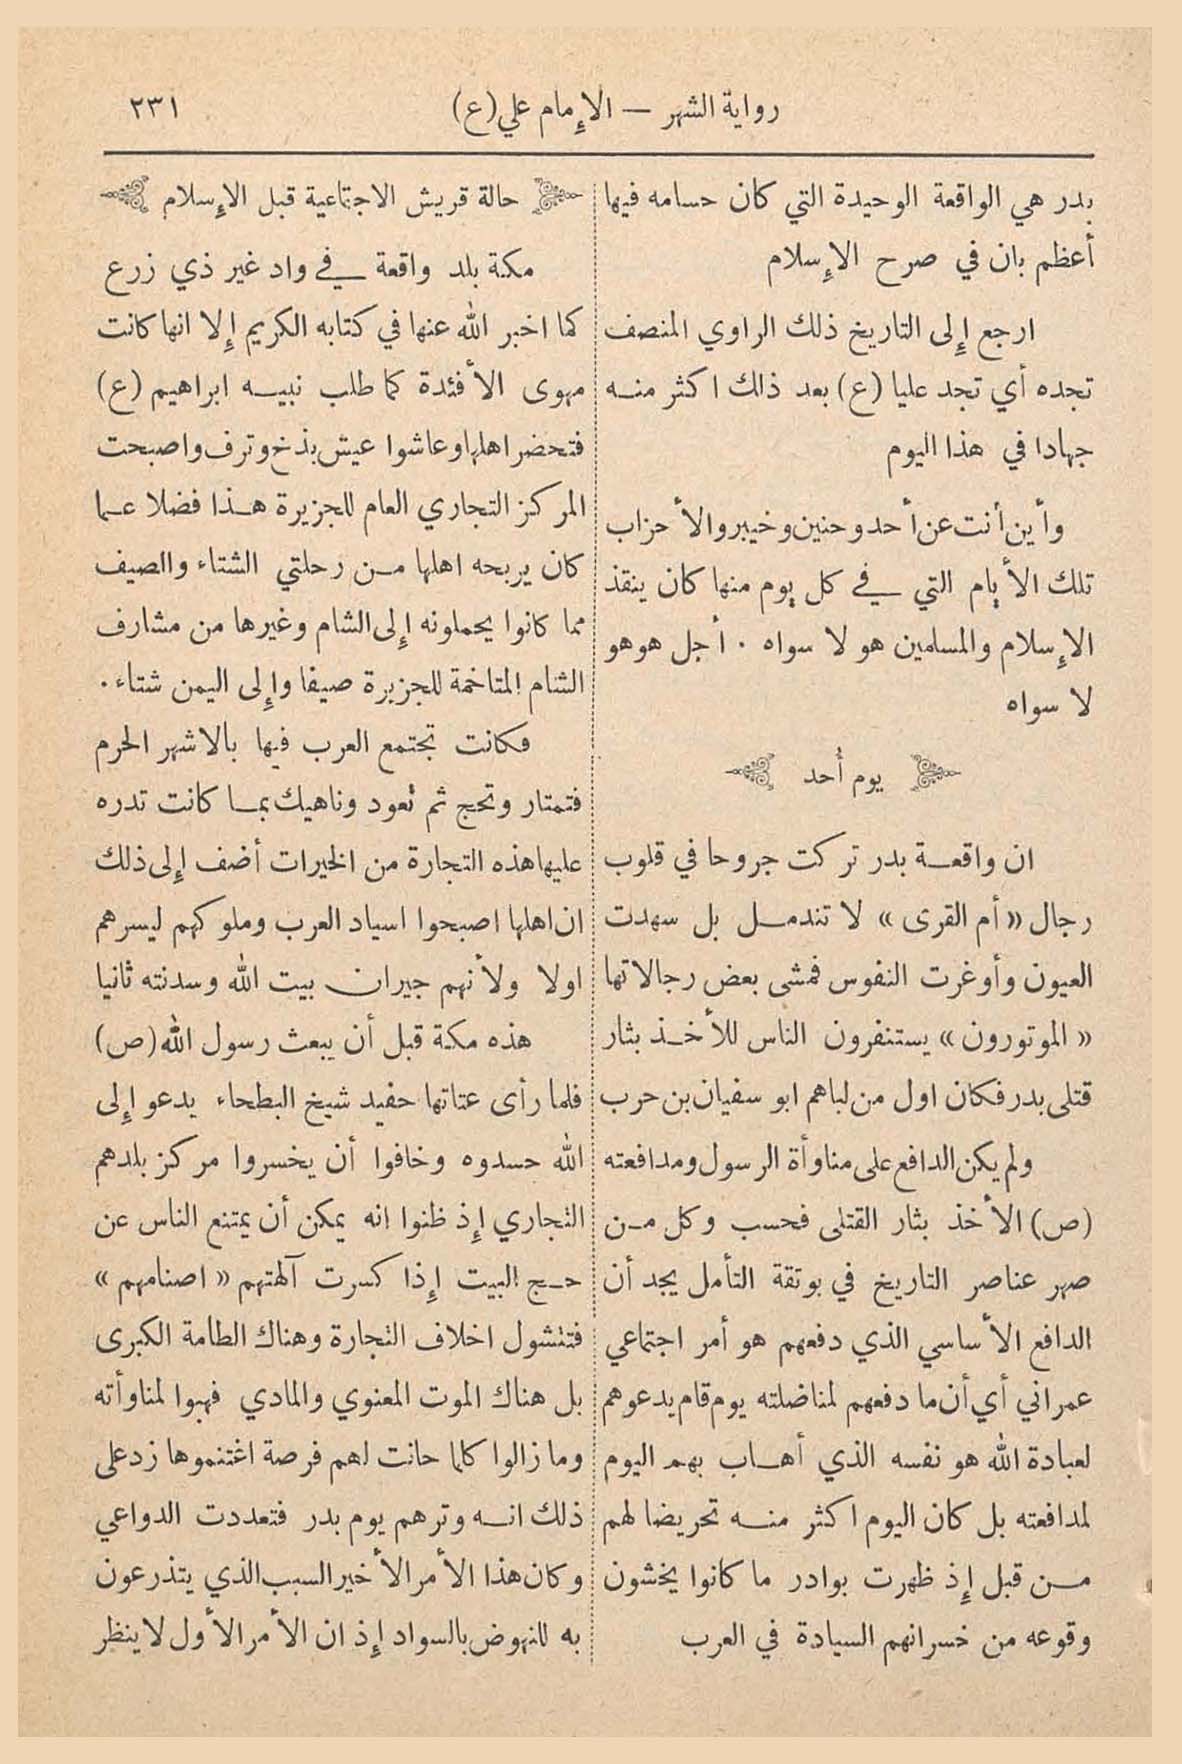 رواية الشهر — الإمام علي (ع)
٢٣١
بدر هي الواقعة الوحيدة التي كان حسامه فيها
أعظم بان في صرح الإسلام
ارجع إلى التاريخ ذلك الراوي المنصف
تجده أي تجد عليا (ع) بعد ذلك اكثر منه
جهادا في هذا اليوم
وأين أنت عن أحد وحنين وخيبر والأحزاب
تلك الأيام التي في كل يوم منها كان ينقذ
الإسلام والمسلمين هو لا سواه . أجل هو هو
لا سواه
يوم أُحد
ان واقعة بدر تركت جروحا في قلوب
رجال « أم القرى » لا تندمل بل سهدت
العيون وأوغرت النفوس فمشى بعض رجالاتها
« الموتورون » يستنفرون الناس للأخذ بثار
قتلى بدر فكان اول من لباهم ابو سفيان بن حرب
ولم يكن الدافع على مناوأة الرسول ومدافعته
(ص) الأخذ بثار القتلى فحسب وكل من
صهر عناصر التاريخ في بوتقة التأمل يجد أن
الدافع الأساسي الذي دفعهم هو أمر اجتماعي
عمراني أي أن ما دفعهم لمناضلته يوم قام يدعوهم
لعبادة الله هو نفسه الذي أهاب بهم اليوم
لمدافعته بل كان اليوم اكثر منه تحريضا لهم
من قبل إذ ظهرت بوادر ما كانوا يخشون
وقوعه من خسرانهم السيادة في العرب
حالة قريش الاجتماعية قبل الإسلام
مكة بلد واقعة في واد غير ذي زرع
كما اخبر الله عنها في كتابه الكريم إلا انها كانت
مهوى الأفئدة كما طلب نبيه ابراهيم (ع)
فتحضر اهلها وعاشوا عيش بذخ وترف واصبحت
المركز التجاري العام للجزيرة هذا فضلا عما
كان يربحه اهلها من رحلتي الشتاء والصيف
مما كانوا يحملونه إلى الشام وغيرها من مشارف
الشام المتاخمة للجزيرة صيفا وإلى اليمن شتاء .
فكانت تجتمع العرب فيها بالاشهر الحرم
فتمتار وتحج ثم تعود وناهيك بما كانت تدره
عليها هذه التجارة من الخيرات أضف إلى ذلك
ان اهلها اصبحوا اسياد العرب وملوكهم ليسرهم
اولا ولأنهم جيران بيت الله وسدنته ثانيا
هذه مكة قبل أن يبعث رسول الله (ص)
فلما رأى عتاتها حفيد شيخ البطحاء يدعو إلى
الله حسدوه وخافوا أن يخسروا مركز بلدهم
التجاري إذ ظنوا انه يمكن أن يمتنع الناس عن
حج البيت إذا كسرت آلهتهم « اصنامهم »
فتنشول اخلاف التجارة وهناك الطامة الكبرى
بل هناك الموت المعنوي والمادي فهبوا لمناوأته
وما زالوا كلما حانت لهم فرصة اغتنموها زد على
ذلك انه وترهم يوم بدر فتعددت الدواعي
وكان هذا الأمر الأخير السبب الذي يتذرعون
به للنهوض بالسواد إذ ان الأمر الأول لا ينظر